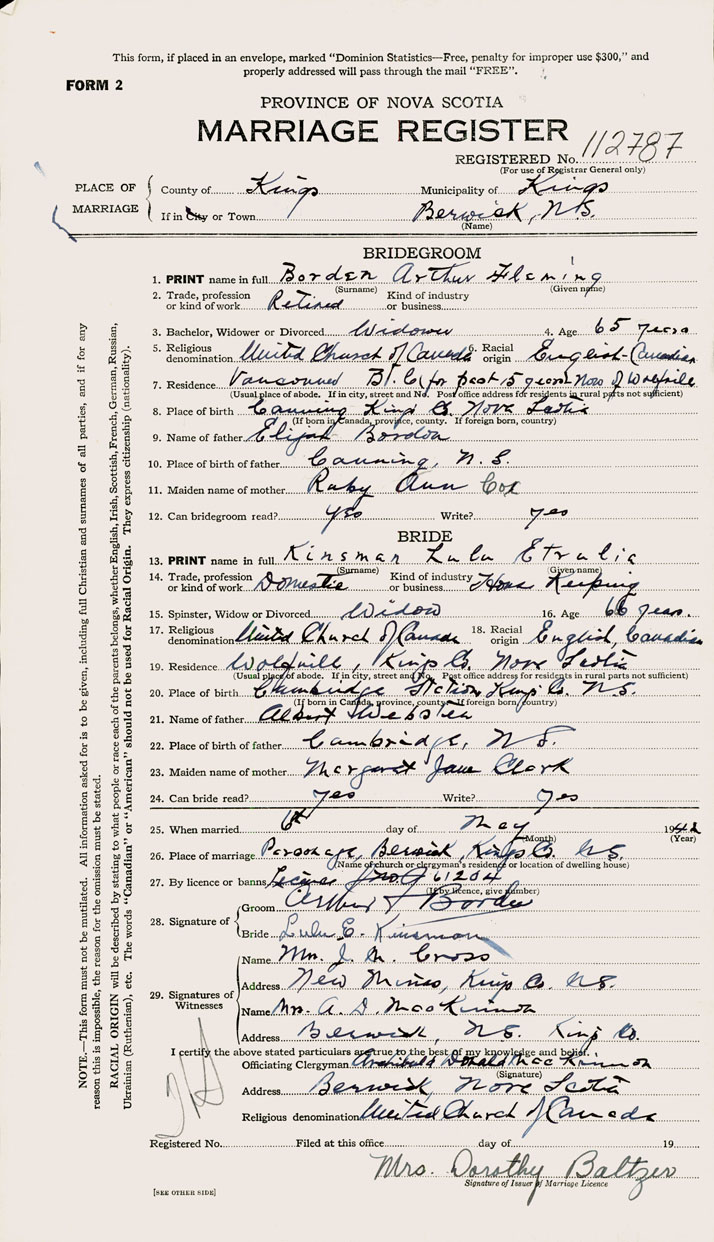 This form, if placed in an envelope, marked “Dominion Statistics—Free, penalty for improper use $300,” and
properly addressed will pass through the mail “FREE”.
FORM 2
PROVINCE OF NOVA SCOTIA
MARRIAGE REGISTER
REGISTERED No. 112787
(For use of Registrar General only)
PLACE OF MARRIAGE
County of Kings Municipality of Kings
If in City or Town Berwick, N.S.
(Name)
BRIDEGROOM
1. PRINT name in full Borden Arthur Fleming
(Surname) (Given name)
2. Trade, profession or kind of work Retired Kind of industry or business
3. Bachelor, Widower or Divorced Widower 4. Age 65 years
5. Religious denomination United Church of Canada 6. Racial origin English-Canadian
7. Residence B.C. (for past 15 years) Wolfville
(Usual place of abode. If in city, street and No. Post office address for residents in rural parts not sufficient)
8. Place of birth Canning Kings Co. Nova Scotia
(If born in Canada, province, county. If foreign born, country)
9. Name of father Elijah Borden
10. Place of birth of father Canning, N.S.
11. Maiden name of mother Ruby Ann Cox
12. Can bridegroom read? yes Write? yes
BRIDE
13. PRINT name in full Kinsman Lulu Etralia
(Surname) (Given name)
14. Trade, profession or kind of work Domestic Kind of industry or business House Keeping
15. Spinster, Widow or Divorced Widow 16. Age 66 years.
17. Religious denomination United Church of Canada 18. Racial origin English, Canadian
19. Residence Wolfville, Kings Co. Nova Scotia
(Usual place of abode. If in city, street and No. Post office address for residents in rural parts not sufficient)
20. Place of birth Cambridge Station Kings Co. N.S.
(If born in Canada, province, county. If foreign born, country)
21. Name of father Albert Webster
22. Place of birth of father Cambridge, N.S.
23. Maiden name of mother Margaret Jane Clark
24. Can bride read? yes Write? yes
25. When married 6th day of May 1942
(Month) (Year)
26. Place of marriage Parsonage, Berwick, Kings Co. N.S.
(Name of church or clergyman's residence or location of dwelling house)
27. By licence or banns License 61204
(If by licence, give number)
28. Signature of
Groom Arthur F Borden
Bride Lulu E. Kinsman
29. Signatures of Witnesses
Name Mrs. J. M. Cross
Address New Minas, Kings Co. N.S.
Name Mrs. A. D. MacKinnon
Address Berwick, N.S. Kings Co.
I certify the above stated particulars are true to the best of my knowledge and belief.
Officiating Clergyman Archibald Donald MacKinnon
(Signature)
Address Berwick, Nova Scotia
Religious denomination United Church of Canada
Registered No. Filed at this office day of 19
Mrs. Dorothy Baltzer
Signature of Issuer of Marriage Licence
[SEE OTHER SIDE]
NOTE.—This form must not be mutilated. All information asked for is to be given, including full Christian and surnames of all parties, and if for any
reason this is impossible, the reason for the omission must be stated.
RACIAL ORIGIN will be described by stating to what people or race each of the parents belongs, whether English, Irish, Scottish, French, German, Russian,
Ukrainian (Ruthenian), etc. The words “Canadian” or “American” should not be used for Racial Origin. They express citizenship (nationality).